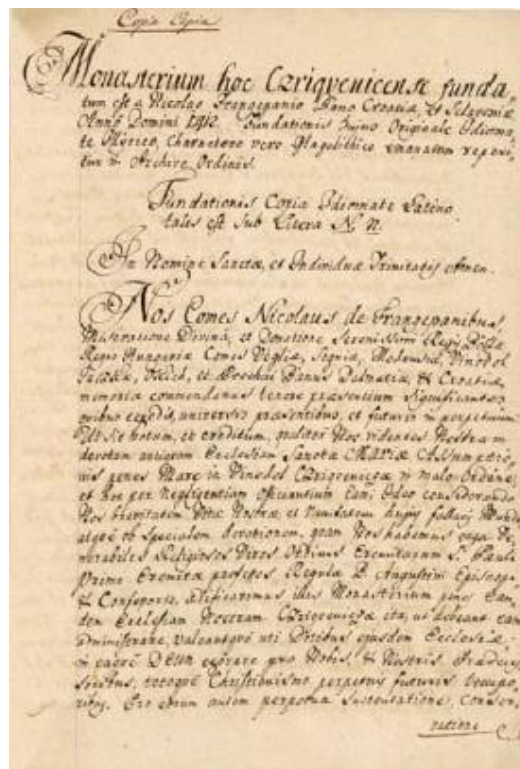 Copia Copiæ
Monasterium hoc Czriqvenicense funda-
tum est a Nicolao Frangepanio Bano Croatiæ, et Sclavoniæ
Anno Domini 1412. Fundationis hujus Originale Idioma-
te Illyrico, Charactere vero Glagolithico emanatum reperi-
tur in Archivo Ordinis.
Fundationis Copia Idiomate Latino
talis est sub Litera N. n.
In Nomine Sanctæ, et Individuæ Trinitatis Amen.
Nos Comes Nicolaus de Frangepanibus
Miseratione Divina, et Donatione Serenissimi Regis Bellæ
Regis Hungariæ Comes Vegliæ, Segniæ, Modrussiæ, Vinodol
et Banus Dalmatiæ, & Croatiæ,
memoriæ commendamus tenore præsentium significantes
quibus expedit, universis præsentibus, et futuris in perpetuum
Ut sit notum, et creditum, qualiter Nos videntes Nostram
devotam Ecclesiam Sanctæ MARIÆ Assumptio-
nis penes Mare in Vinodol Czriqvenicæ in malo Ordine,
et hoc per negligentiam Ideo considerando
Nos brevitatem Vitæ Nostræ, et hujus fallacis Mundi
ob specialem devotionem, quam Nos habemus erga Ve-
nerabiles Religiosos Viros Ordinis Eremitarum S. Pauli
Primi Eremitæ professos Regulæ D. Augustini Episcopi,
& Confessoris, ædificavimus illis Monasterium penes Ean-
dem Ecclesiam Nostram Czriqvenicæ ita, ut debeant eam
administrare, valeantque uti ejusdem Ecclesiæ
in eadem DEUM exorare pro Nobis, & Nostris Prædeces-
soribus, totoque Christianismo perpetuis futuris tempo-
ribus. Pro eorum autem perpetua sustentatione, conser-
vatione